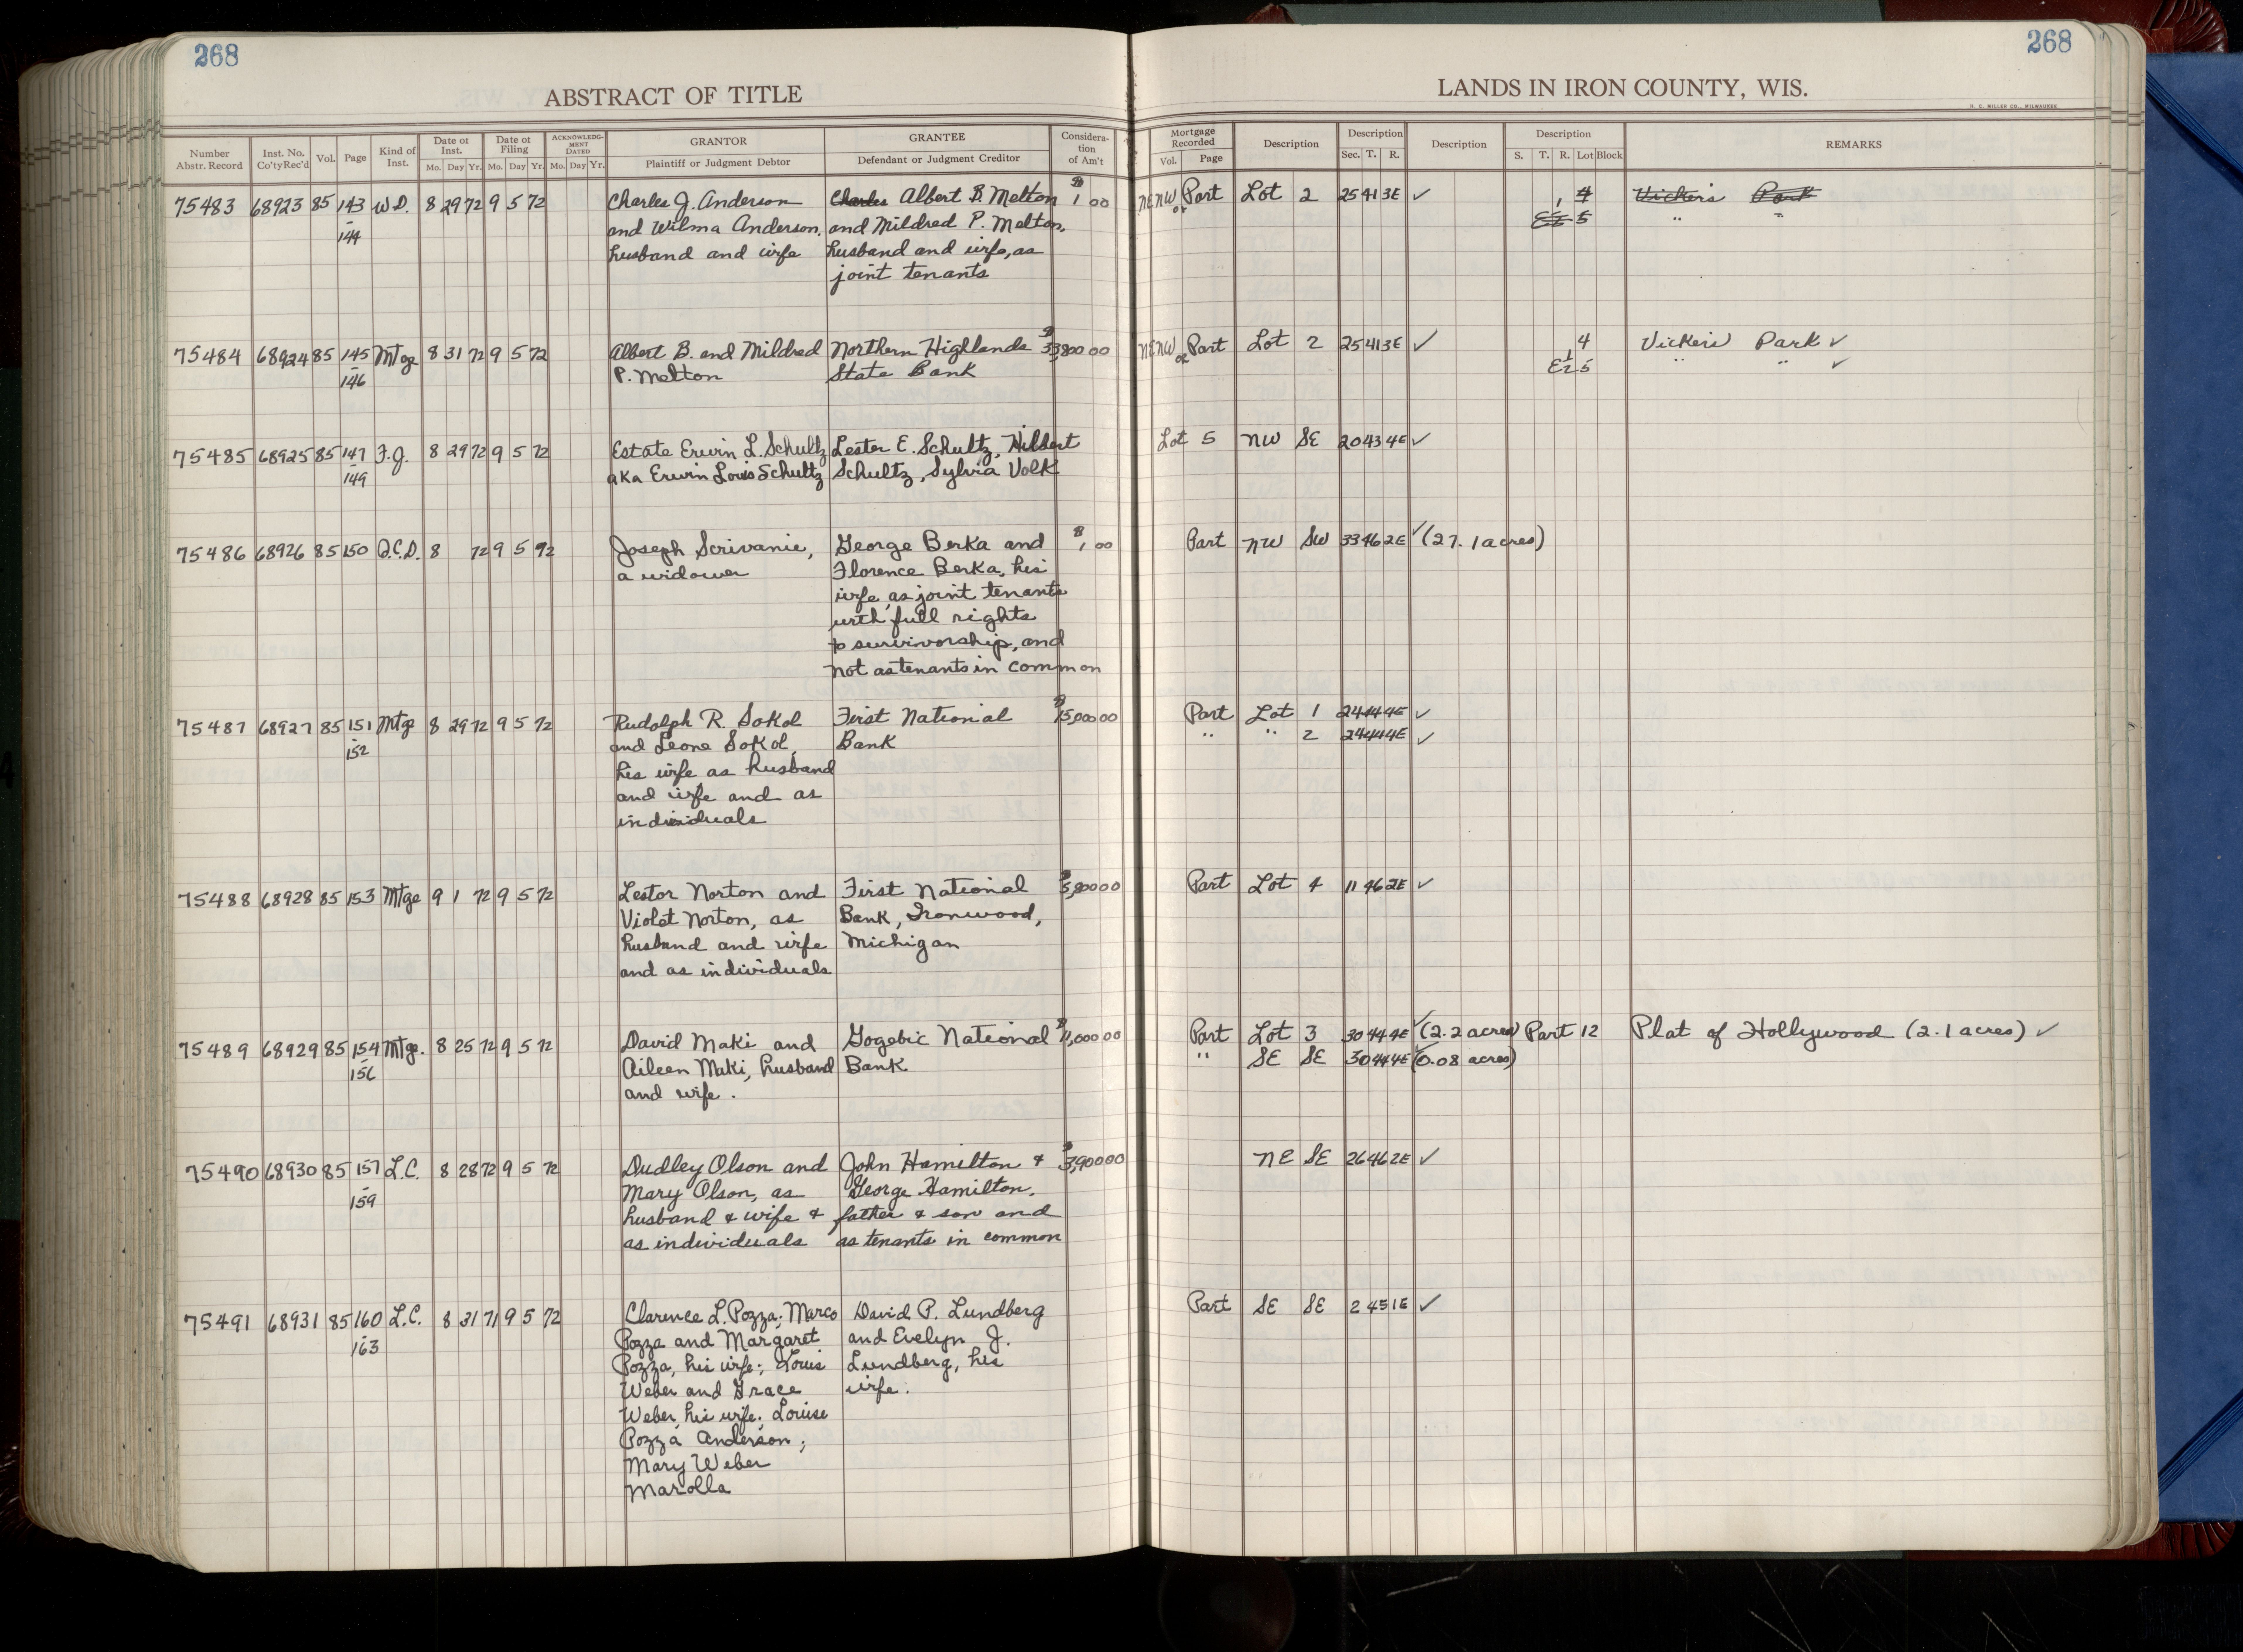 268
268
ABSTRACT OF TITLE
LANDS IN IRON COUNTY, WIS.
H. C. MILLER CO., MILWAUKEE
Number Abstr. Record Inst. No. Co'ty Rec'd Vol. Page Kind of Inst. Date of Inst. Mo. Day Yr. Date of Filing Mo. Day Yr. ACKNOWLEDGMENT DATED Mo. Day Yr. GRANTOR Plaintiff or Judgment Debtor GRANTEE Defendant or Judgment Creditor Consideration of Am't Mortgage Recorded Vol. Page Description Description Sec. T. R. Description Description S. T. R. Lot Block REMARKS
75483 68923 85 143 W.D. 8 29 72 9 5 72 Charles J. Anderson Charles Albert B. Melton $1 00 NE NW or Part Lot 2 25 41 3E ✓ 4 Vickers Park
- 144 and Wilma Anderson, and Mildred P. Melton, E½ 5 " "
husband and wife husband and wife, as
joint tenants
75484 68924 85 145 Mtge 8 31 72 9 5 72 Albert B. and Mildred Northern Highlands $3,800 00 NE NW or Part Lot 2 25 41 3E ✓ 4 Vickers Park ✓
- 146 P. Melton State Bank E½ 5 " " ✓
75485 68925 85 147 F.J. 8 29 72 9 5 72 Estate Erwin L. Schultz Lester E. Schultz, Hilbert Lot 5 NW SE 20 43 4E ✓
- 149 aka Erwin Louis Schultz Schultz, Sylvia Volk
75486 68926 85 150 Q.C.D. 8 72 9 5 72 Joseph Scrivanie, George Berka and $1 00 Part NW SW 33 46 2E ✓ (27.1 acres)
a widower Florence Berka, his
wife, as joint tenants
with full rights
to survivorship, and
not as tenants in common
75487 68927 85 151 Mtge 8 29 72 9 5 72 Rudolph R. Sokol First National $15,000 00 Part Lot 1 24 44 4E ✓
- 152 and Leone Sokol, Bank " " 2 24 44 4E ✓
his wife as husband
and wife and as
individuals
75488 68928 85 153 Mtge 9 1 72 9 5 72 Lestor Norton and First National $5,800 00 Part Lot 4 11 46 2E ✓
Violet Norton, as Bank, Ironwood,
husband and wife Michigan
and as individuals
75489 68929 85 154 Mtge. 8 25 72 9 5 72 David Maki and Gogebic National $11,000 00 Part Lot 3 30 44 4E ✓ (2.2 acres) Part 12 Plat of Hollywood (2.1 acres) ✓
- 156 Aileen Maki, husband Bank " SE SE 30 44 4E ✓ (0.08 acres)
and wife.
75490 68930 85 157 L.C. 8 28 72 9 5 72 Dudley Olson and John Hamilton & $3,900 00 NE SE 26 46 2E ✓
- 159 Mary Olson, as George Hamilton,
husband & wife & father & son and
as individuals as tenants in common
75491 68931 85 160 L.C. 8 31 71 9 5 72 Clarence L. Pozza; Marco David P. Lundberg Part SE SE 2 45 1E ✓
- 163 Pozza and Margaret and Evelyn J.
Pozza, his wife; Louis Lundberg, his
Weber and Grace wife.
Weber, his wife; Louise
Pozza Anderson;
Mary Weber
Marolla